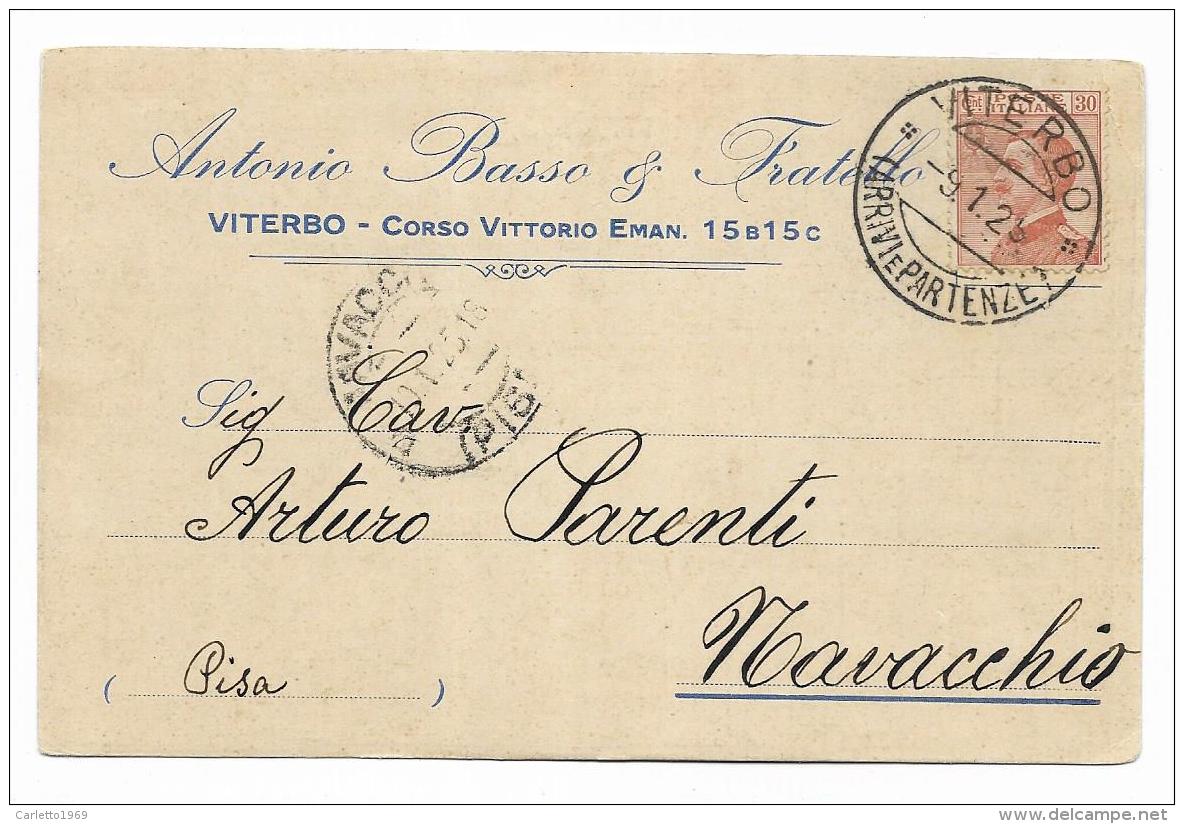 Antonio Basso & Fratello
VITERBO - CORSO VITTORIO EMAN. 15B 15C
Cnt POSTE ITALIANE 30
VITERBO
(ARRIVI E PARTENZE)
Sig Cav.
Arturo Parenti
Navacchio
( Pisa )
Carletto1969
delcampe.net